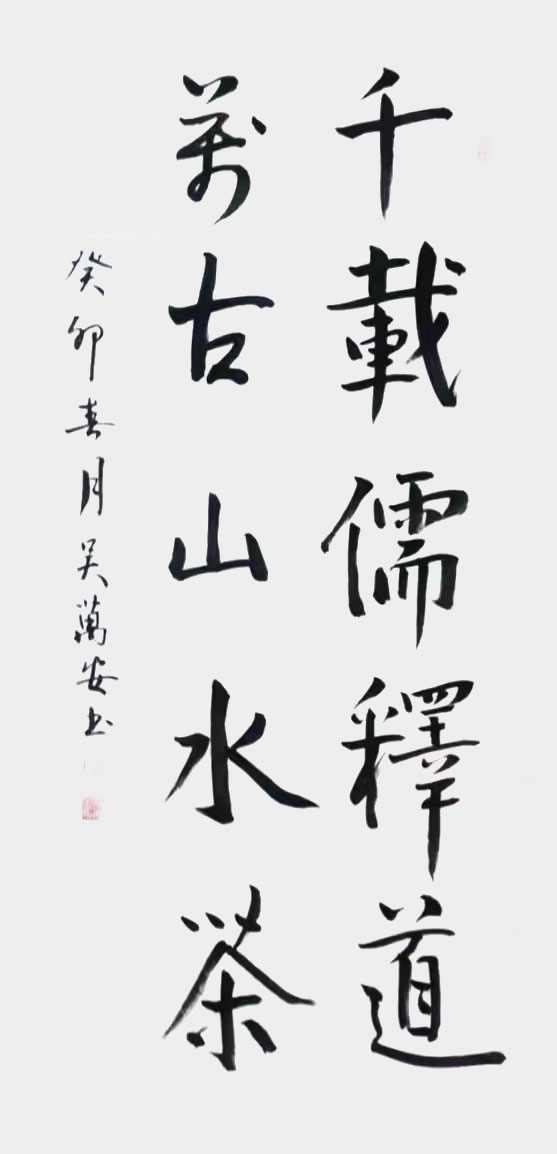 千載儒釋道
萬古山水茶
癸卯春月吴萬安书